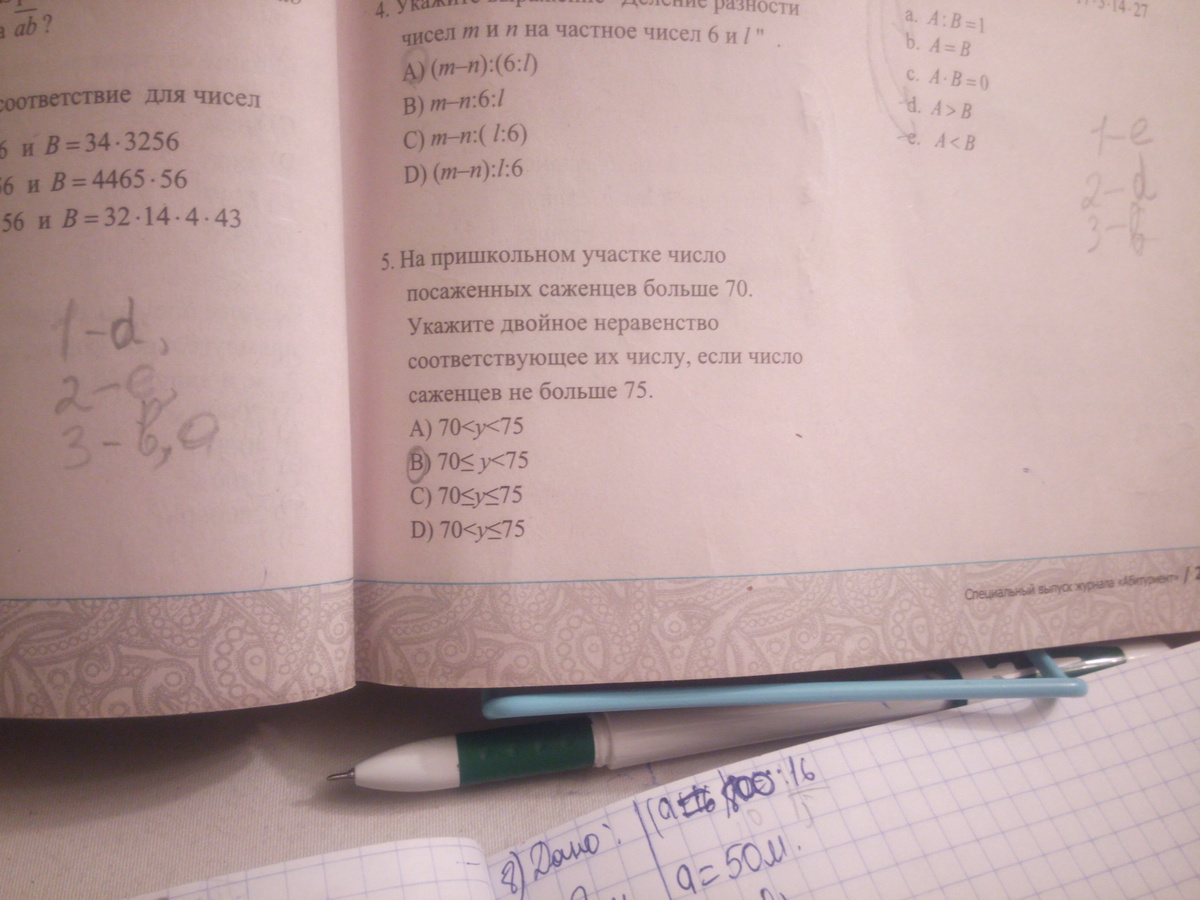 а ab ?
соответствие для чисел
6 и B = 34 · 3256
56 и B = 4465 · 56
56 и B = 32 · 14 · 4 · 43
1-d,
2-e,
3-b, a
4. Укажите выражение "Деление разности
чисел m и n на частное чисел 6 и l" .
A) (m–n):(6:l)
B) m–n:6:l
C) m–n:( l:6)
D) (m–n):l:6
5. На пришкольном участке число
посаженных саженцев больше 70.
Укажите двойное неравенство
соответствующее их числу, если число
саженцев не больше 75.
A) 70<y<75
B) 70≤ y<75
C) 70≤y≤75
D) 70<y≤75
14 · 27
a. A : B = 1
b. A = B
c. A · B = 0
d. A > B
e. A < B
1-e
2-d
3-b
Специальный выпуск журнала «Абитуриент» / 2
8) Дано:
:16
a = 50м.